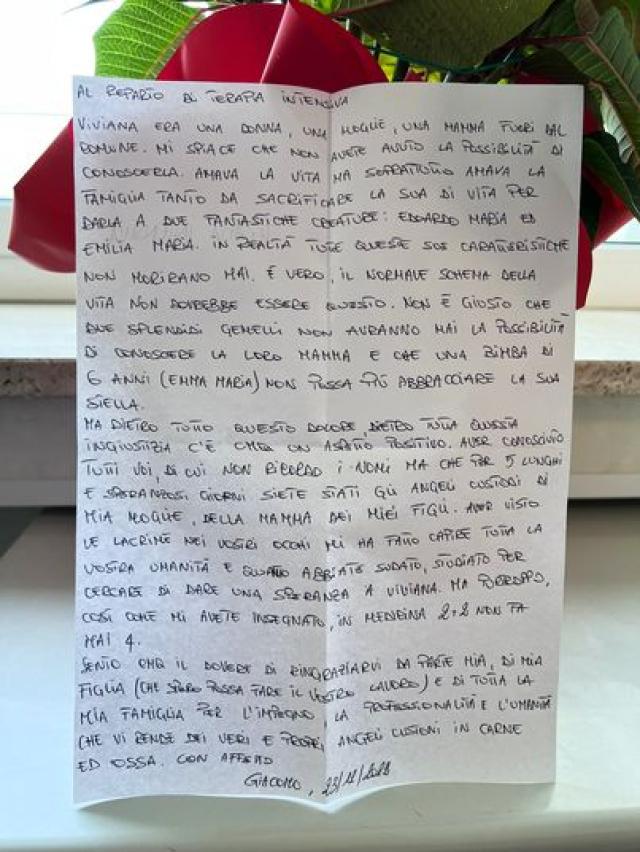 AL REPARTO DI TERAPIA INTENSIVA
VIVIANA ERA UNA DONNA, UNA MOGLIE, UNA MAMMA FUORI DAL
COMUNE. MI SPIACE CHE NON AVETE AVUTO LA POSSIBILITÀ DI
CONOSCERLA. AMAVA LA VITA MA SOPRATTUTTO AMAVA LA
FAMIGLIA TANTO DA SACRIFICARE LA SUA DI VITA PER
DARLA A DUE FANTASTICHE CREATURE: EDOARDO MARIA ED
EMILIA MARIA. IN REALTÀ TUTTE QUESTE SUE CARATTERISTICHE
NON MORIRANO MAI. È VERO, IL NORMALE SCHEMA DELLA
VITA NON DOVREBBE ESSERE QUESTO. NON È GIUSTO CHE
DUE SPLENDIDI GEMELLI NON AVRANNO MAI LA POSSIBILITÀ
DI CONOSCERE LA LORO MAMMA E CHE UNA BIMBA DI
6 ANNI (EMMA MARIA) NON POSSA PIÙ ABBRACCIARE LA SUA
STELLA.
MA DIETRO TUTTO QUESTO DOLORE, DIETRO TUTTA QUESTA
INGIUSTIZIA C'È UN ASPETTO POSITIVO. AVER CONOSCIUTO
TUTTI VOI, DI CUI NON RICORDO I NOMI MA CHE PER 5 LUNGHI
E SPERANZOSI GIORNI SIETE STATI GLI ANGELI CUSTODI DI
MIA MOGLIE, DELLA MAMMA DEI MIEI FIGLI. AVER VISTO
LE LACRIME NEI VOSTRI OCCHI MI HA FATTO CAPIRE TUTTA LA
VOSTRA UMANITÀ E QUANTO ABBIATE SUDATO, STUDIATO PER
CERCARE DI DARE UNA SPERANZA A VIVIANA. MA PURTROPPO,
COSÌ COME MI AVETE INSEGNATO, IN MEDICINA 2+2 NON FA
MAI 4.
SENTO IL DOVERE DI RINGRAZIARVI DA PARTE MIA, DI MIA
FIGLIA (CHE SPERO POSSA FARE IL VOSTRO LAVORO) E DI TUTTA LA
MIA FAMIGLIA PER L'IMPEGNO, LA PROFESSIONALITÀ E L'UMANITÀ
CHE VI RENDE DEI VERI E PROPRI ANGELI CUSTODI IN CARNE
ED OSSA. CON AFFETTO
GIACOMO,